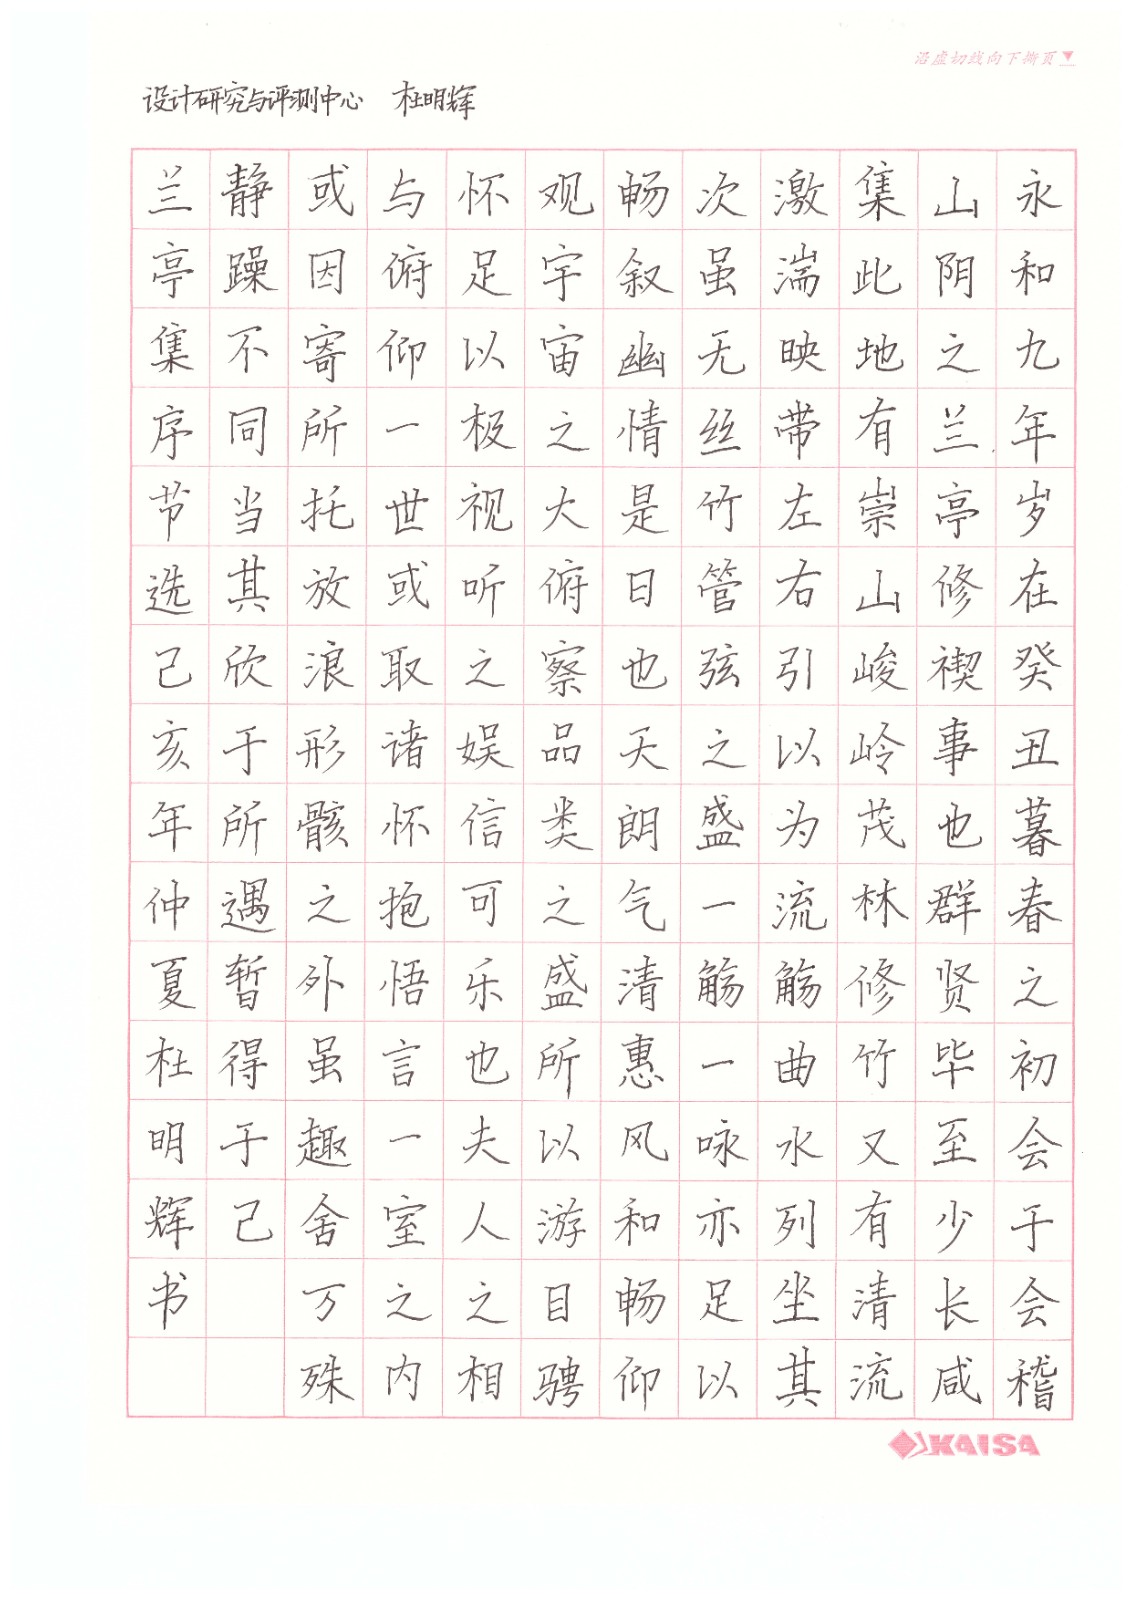 沿虚切线向下撕页
设计研究与评测中心 杜明辉
永和九年岁在癸丑暮春之初会于会稽
山阴之兰亭修禊事也群贤毕至少长咸
集此地有崇山峻岭茂林修竹又有清流
激湍映带左右引以为流觞曲水列坐其
次虽无丝竹管弦之盛一觞一咏亦足以
畅叙幽情是日也天朗气清惠风和畅仰
观宇宙之大俯察品类之盛所以游目骋
怀足以极视听之娱信可乐也夫人之相
与俯仰一世或取诸怀抱悟言一室之内
或因寄所托放浪形骸之外虽趣舍万殊
静躁不同当其欣于所遇暂得于己
兰亭集序节选己亥年仲夏杜明辉书
KAISA